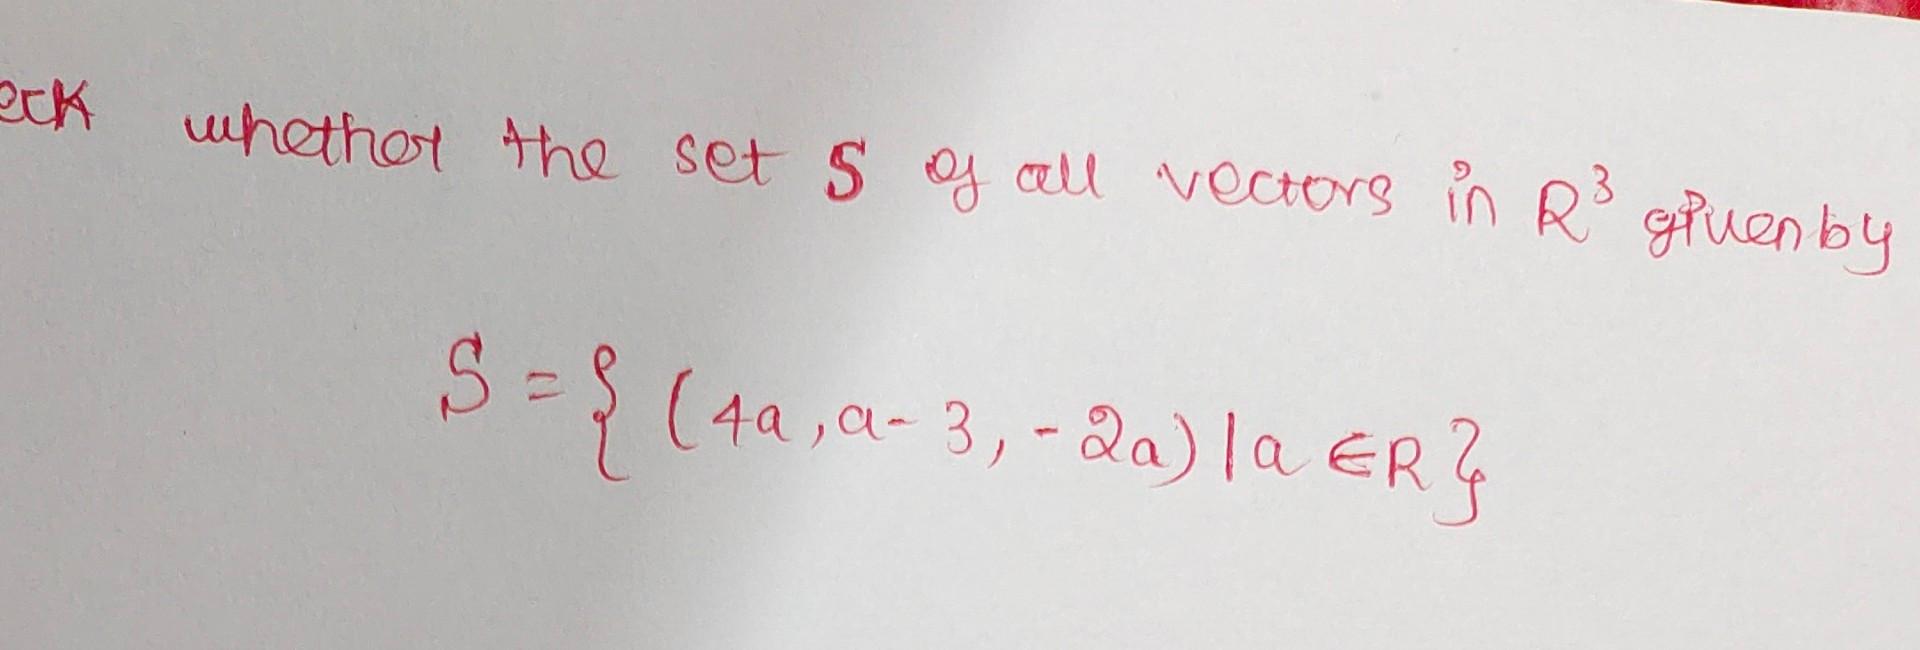 eck whether the set S of all vectors in R³ given by
S = { (4a, a - 3, - 2a) | a ∈ R }